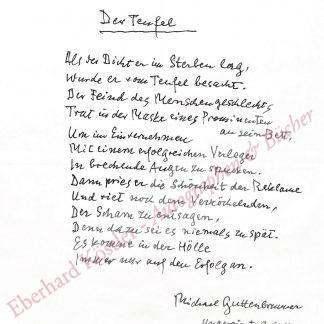 Der Teufel
Als der Dichter im Sterben lag,
Wurde er vom Teufel besucht.
Der Feind des Menschengeschlechts
Trat in der Maske eines Prominenten
an sein Bett,
Um im Einvernehmen
Mit einem erfolgreichen Verleger
In brechende Augen zu spucken.
Dann pries er die Schönheit der Reklame
Und riet noch dem Verröchelnden,
Der Scham zu entsagen,
Denn dazu sei es niemals zu spät.
Es komme in der Hölle
Immer nur auf den Erfolg an.
Michael Guttenbrunner
Eberhard Köstler - Autographen & Bücher